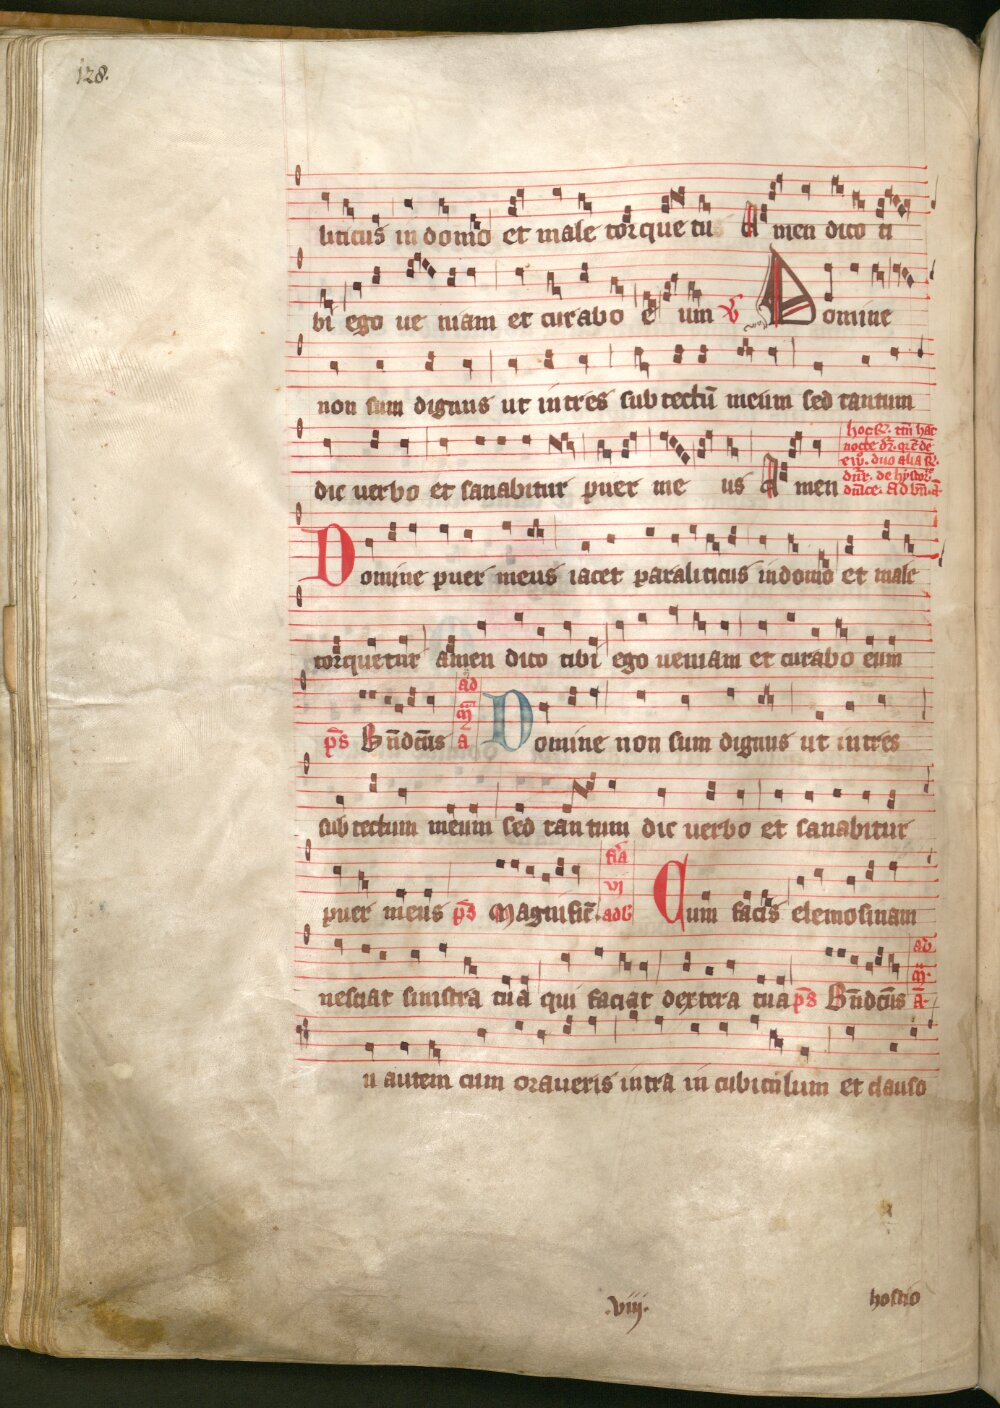 128.
liticus in domo et male torque tur Amen dico ti
bi ego ue niam et curabo e um V Domine
non sum dignus ut intres sub tectū meum sed tantum
dic uerbo et sanabitur puer me us Amen
hoc R. tm̄ hac
nocte dr̄.
duo alia R.
de hystor.
Domine puer meus iacet paraliticus in domo et male
torquetur amen dico tibi ego ueniam et curabo eum
p̄s Bn̄dcūs ad m̄ a Domine non sum dignus ut intres
sub tectum meum sed tan tum dic uerbo et sanabitur
puer meus p̄s Magnific̄. fr̄a vi ad B Cum facis elemosinam
nesciat sinistra tua qui faciat dextera tua p̄s Bn̄dcūs ad m̄. a
u autem cum oraueris intra in cubiculum et clauso
.viij.
hostio